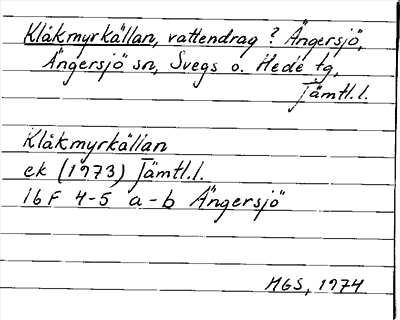 Klåkmyrkällan, vattendrag? Ängersjö,
Ängersjö sn, Svegs o. Hede tg,
Jämtl.l.
Klåkmyrkällan
ek (1973) Jämtl.l.
16F 4-5 a-b Ängersjö
MGS, 1974